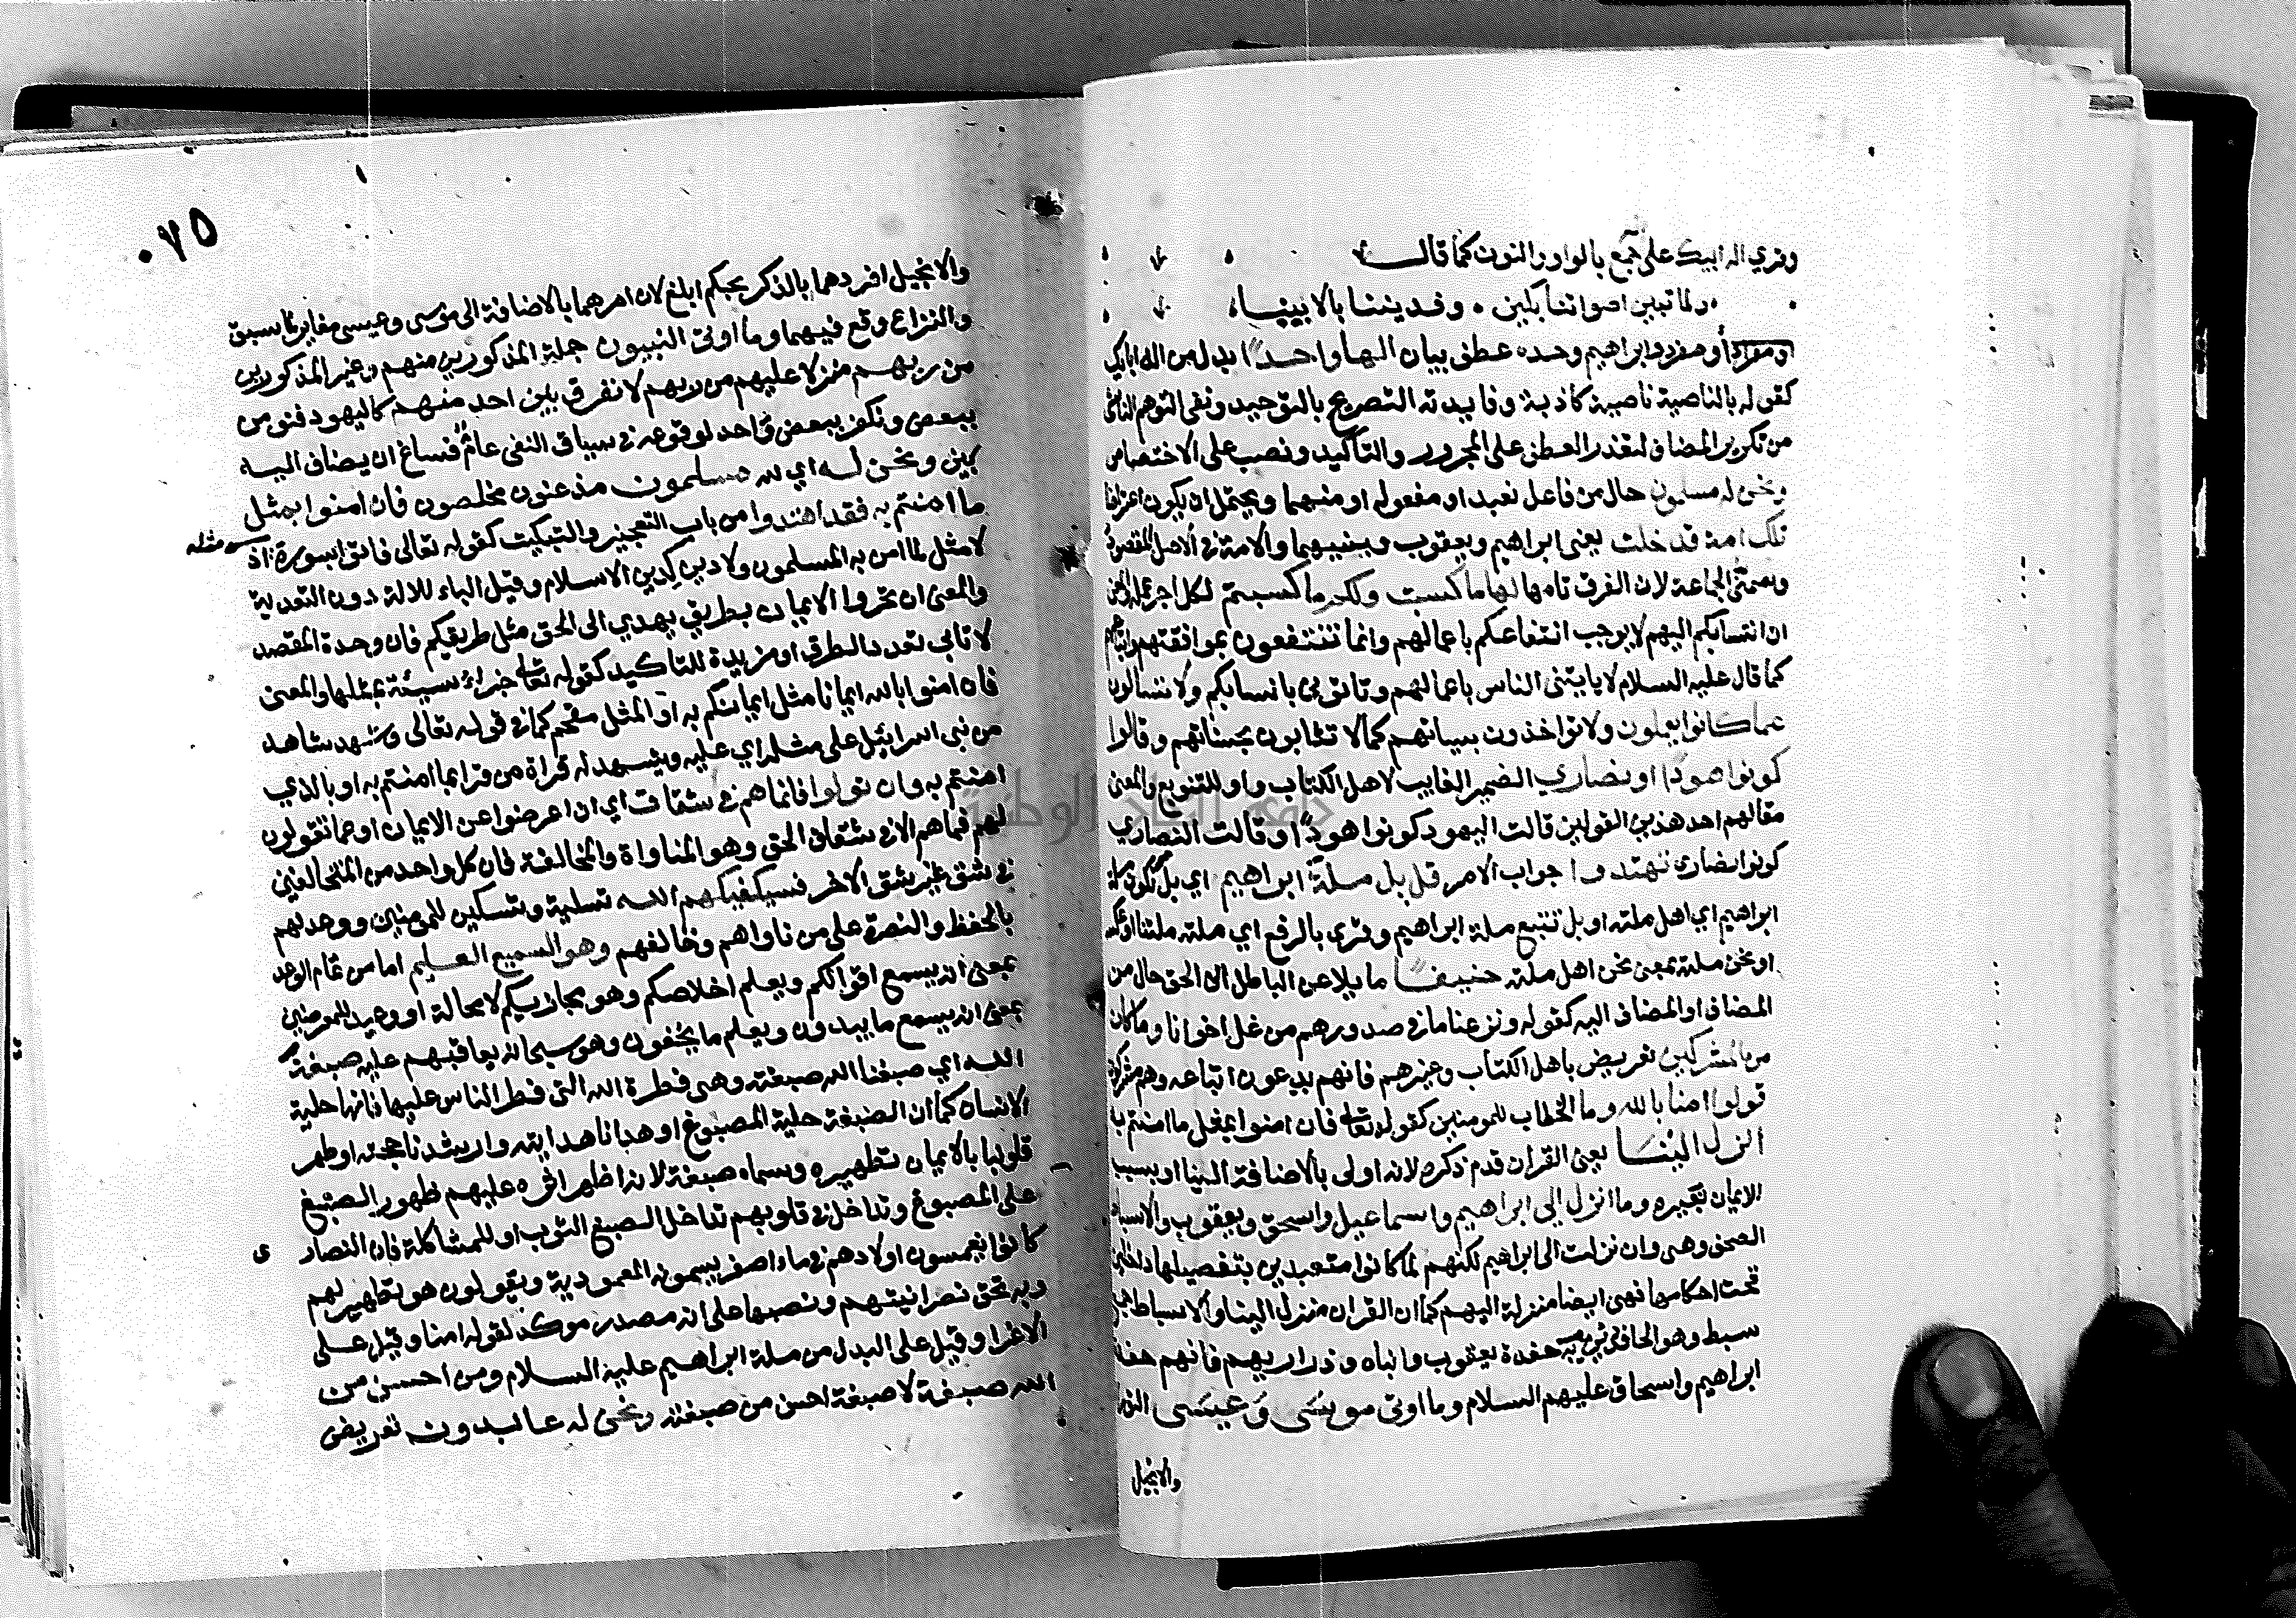 وقري اله ابيك على جمع بالواو والنون كما قال
ولما تبين اصواتنا بكين وفديننا بالابينا
او مفرد وابراهيم وحده عطف بيان الها واحدا بدل من اله ابايك
كقوله بالناصية ناصية كاذبة وفايدته التصريح بالتوحيد ونفى التوهم الناشئ
من تكرير المضاف لتعذر العطف على المجرور والتأكيد ونصب على الاختصاص
ونحن له مسلمون حال من فاعل نعبد او مفعوله او منهما ويحتمل ان يكون اعتراضا
تلك امة قد خلت يعنى ابراهيم ويعقوب وبنيهما والامة في الاصل المقصود
وسمى الجماعة لان الفرق تامها لها ما كسبت ولكم ما كسبتم لكل اجر عمله
ان انتسابكم اليهم لا يوجب انتفاعكم باعمالهم وانما تنتفعون بموافقتهم واتباعهم
كما قال عليه السلام لا ياتينى الناس باعمالهم وتاتونى بانسابكم ولا تسالون
عما كانوا يعملون ولا تواخذون بسياتهم كما لا تثابون بحسناتهم وقالوا
كونوا هودا او نصارى الضمير الغايب لاهل الكتاب واو للتنويع والمعنى
مقالهم احد هذين القولين قالت اليهود كونوا هودا وقالت النصارى
كونوا نصارى تهتدوا جواب الامر قل بل ملة ابراهيم اي بل نكون ملة
ابراهيم اي اهل ملته او بل نتبع ملة ابراهيم وقرى بالرفع اي ملته ملتنا او عكسه
او نحن ملته بمعنى نحن اهل ملته حنيفا مايلا عن الباطل الى الحق حال من
المضاف او المضاف اليه كقوله ونزعنا ما في صدورهم من غل اخوانا وما كان
من المشركين تعريض باهل الكتاب وغيرهم فانهم يدعون اتباعه وهم مشركون
قولوا امنا بالله وما الخطاب للمومنين كقوله تعالى فان امنوا بمثل ما امنتم به
انزل الينا يعنى القران قدم ذكره لانه اولى بالاضافة الينا او بسبب
الايمان بغيره وما انزل الى ابراهيم واسماعيل واسحق ويعقوب والاسباط
الصحف وهى وان نزلت الى ابراهيم لكنهم لما كانوا متعبدين بتفصيلها داخلين
تحت احكامها فهى ايضا منزلة اليهم كما ان القران منزل الينا والاسباط جمع
سبط وهو الحافد يريد به حفدة يعقوب وابناه وذراريهم فانهم حفدة
ابراهيم واسحاق عليهم السلام وما اوتى موسى وعيسى التوراة
والانجيل
٠٧٥
والانجيل افردهما بالذكر بحكم ابلغ لان امرهما بالاضافة الى موسى وعيسى مغاير لما سبق
والنزاع وقع فيهما وما اوتى النبيون جملة المذكورين منهم وغير المذكورين
من ربهم منزلا عليهم من ربهم لا نفرق بين احد منهم كاليهود فنومن
ببعض ونكفر ببعض واحد لوقوعه في سياق النفى عام فساغ ان يضاف اليه
بين ونحن له اي لله مسلمون مذعنون مخلصون فان امنوا بمثل
ما امنتم به فقد اهتدوا من باب التعجيز والتبكيت كقوله تعالى فاتوا بسورة اذ
من مثله
لا مثل لما امن به المسلمون ولا دين كدين الاسلام وقيل الباء للالة دون التعدية
والمعنى ان تحروا الايمان بطريق يهدي الى الحق مثل طريقكم فان وحدة المقصد
لا تابى تعدد الطرق او مزيدة للتاكيد كقوله تعالى جزاء سيئة بمثلها والمعنى
فان امنوا بالله ايمانا مثل ايمانكم به او المثل مقحم كما في قوله تعالى وشهد شاهد
من بنى اسرائيل على مثله اي عليه ويشهد له قراة من قرا بما امنتم به او بالذي
امنتم به وان تولوا فانما هم في شقاق اي ان اعرضوا عن الايمان او عما تقولون
لهم فما هم الا في شقاق الحق وهو المناواة والمخالفة فان كل واحد من المتخالفين
في شق غير شق الاخر فسيكفيكهم الله تسلية وتسكين للمومنين ووعد لهم
بالحفظ والنصرة على من ناواهم وخالفهم وهو السميع العليم اما من تمام الوعد
بمعنى انه يسمع اقوالكم ويعلم اخلاصكم وهو مجازيكم لا محالة او وعيد للمعرضين
بمعنى انه يسمع ما يبدون ويعلم ما يخفون وهو سبحانه يعاقبهم عليه صبغة
الله اي صبغنا الله صبغته وهى فطرة الله التى فطر الناس عليها فانها حلية
الانسان كما ان الصبغة حلية المصبوغ او هدانا هدايته وارشدنا حجته او طهر
قلوبنا بالايمان تطهيره وسماه صبغة لانه اظهر اثره عليهم ظهور الصبغ
على المصبوغ وتداخل في قلوبهم تداخل الصبغ الثوب او للمشاكلة فان النصار
ى
كانوا يغمسون اولادهم في ماء اصفر يسمونه المعمودية ويقولون هو تطهير لهم
وبه تحق نصرانيتهم ونصبها على انه مصدر موكد لقوله امنا وقيل على
الاغرا وقيل على البدل من ملة ابراهيم عليه السلام ومن احسن من
الله صبغة لا صبغة احسن من صبغته ونحن له عابدون تعريض